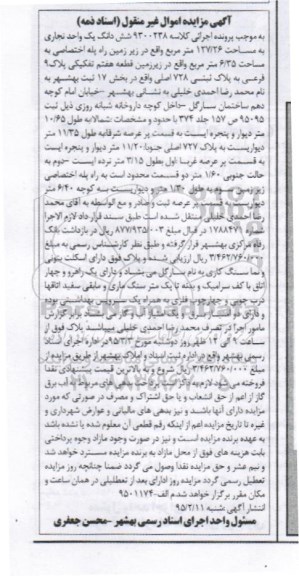 آگهی مزایده اموال غیر منقول (اسناد ذمه)
به موجب پرونده اجرائی کلاسه ۹۳۰۰۲۳۸ شش دانگ یک واحد تجاری
به مساحت ۱۳۷/۲۶ متر مربع واقع در زیر زمین راه پله اختصاصی به
مساحت ۶/۳۵ متر مربع واقع در زیرزمین قطعه هفتم تفکیکی پلاک ۹
فرعی به پلاک ثبتی ۷۲۸ اصلی واقع در بخش ۱۷ ثبت بهشهر به
نام محمد رضا احمدی خلیلی به نشانی بهشهر -خیابان امام کوچه
دهم ساختمان سارگل -داخل کوچه داروخانه شبانه روزی ذیل ثبت
۹۵۰۹۵ ص ۱۵۷ جلد ۳۷۴ با حدود و مشخصات: شمالا به طول ۱۰/۶۵
متر دیوار و پنجره ایست به قسمت پر عرصه شرقا به طول ۱۱/۳۵ متر
دیواریست به پلاک ۷۲۷ اصلی جنوبا ۱۱/۲۰ متر دیوار و پنجره ایست
به قسمت پر عرصه غربا اول بطول ۳/۱۵ متر نرده ایست -دوم به
حالت جنوبی ۱/۶۰ متر دو قسمت محدود است به راه پله اختصاصی
زیرزمین سوم به طول ۱/۳۰ متر دیواریست به کوچه ۶/۴۰ متر
دیواریست به قسمت پر عرصه ثبت و صادر و مع الواسطه به آقای محمد
رضا احمدی خلیلی منتقل شده است طبق سند
شماره ۱۷۸۸۴۷۱ در قبال مبلغ ۸۷۷/۹۳۵/۰۰۳ ریال در بازداشت بانک
رفاه مرکزی بهشهر قرار گرفته و طبق نظر کارشناس رسمی به مبلغ
۳/۴۶۲/۷۶۰/۸۰۰ ریال ارزیابی شده و پلاک فوق دارای اسکلت بتونی
و نما سنگ کاری به نام سارگل می باشد و دارای یک راهرو و چهار
اتاق با کف سرامیک و بدنه تا یک متر سنگ ماری و مابقی سفید اتاقها
درب چوبی و چهارچوب فلزی به همراه یک سرویس بهداشتی بوده
مامور اجرا در تصرف محمد رضا احمدی خلیلی میباشد پلاک فوق از
ساعت ۹ الی ۱۲ ظهر روز دوشنبه مورخ ۹۵/۳/۳ در اداره اجرای اسناد
رسمی بهشهر واقع در اداره ثبت اسناد و املاک بهشهر از طریق مزایده از
مبلغ ۳/۴۶۲/۷۶۰/۸۰۰ ریال شروع و به بالاترین قیمت پیشنهادی نقدا
فروخته می شود لازم به ذکر است پرداخت بدهی های مربوط به آب برق
گاز از اعم از حق انشعاب و یا حق اشتراک و مصرف در صورتی که مورد
مزایده دارای آنها باشد و نیز بدهی های مالیاتی و عوارض شهرداری و
غیره تا تاریخ مزایده اعم از اینکه رقم قطعی آن معلوم شده یا نشده باشد
به عهده برنده مزایده است و نیز در صورت وجود مازاد وجوه پرداختی
بابت هزینه های فوق از محل مازاد به برنده مزایده مسترد خواهد شد
و نیم عشر و حق مزایده نقدا وصول می گردد ضمنا چنانچه روز مزایده
تعطیل رسمی گردد مزایده روز اداری بعد از تعطیلی در همان ساعت و
مکان مقرر برگزار خواهد شد م الف-۹۵۰۱۱۷۴
انتشار آگهی :شنبه ۹۵/۲/۱۱
مسئول واحد اجرای اسناد رسمی بهشهر -محسن جعفری